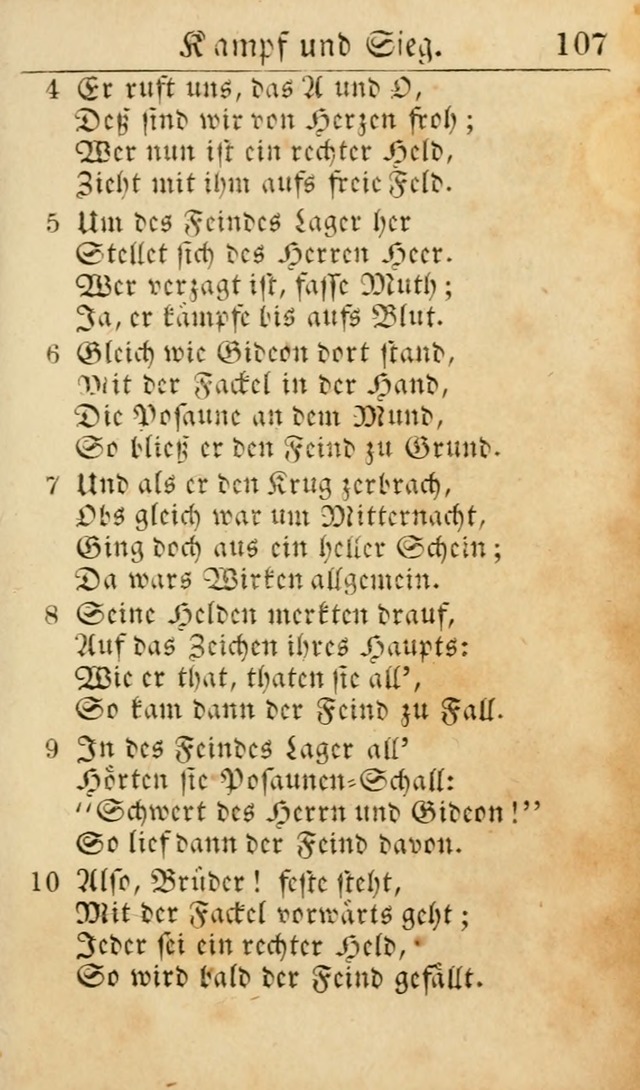 Kampf und Sieg. 107
4 Er ruft uns, das A und O,
Deß sind wir von Herzen froh;
Wer nun ist ein rechter Held,
Zieht mit ihm aufs freie Feld.
5 Um des Feindes Lager her
Stellet sich des Herren Heer.
Wer verzagt ist, fasse Muth;
Ja, er kämpfe bis aufs Blut.
6 Gleich wie Gideon dort stand,
Mit der Fackel in der Hand,
Die Posaune an dem Mund,
So bließ er den Feind zu Grund.
7 Und als er den Krug zerbrach,
Obs gleich war um Mitternacht,
Ging doch aus ein heller Schein;
Da wars Wirken allgemein.
8 Seine Helden merkten drauf,
Auf das Zeichen ihres Haupts:
Wie er that, thaten sie all’,
So kam dann der Feind zu Fall.
9 In des Feindes Lager all’
Hörten sie Posaunen-Schall:
"Schwert des Herrn und Gideon!"
So lief dann der Feind davon.
10 Also, Brüder! feste steht,
Mit der Fackel vorwärts geht;
Jeder sei ein rechter Held,
So wird bald der Feind gefällt.